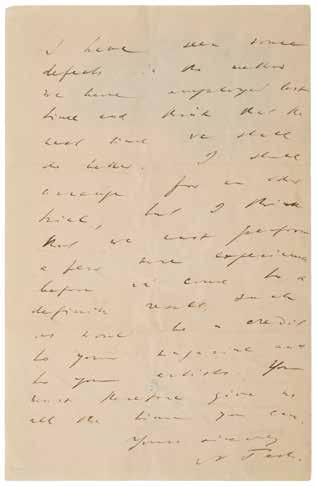 I have seen some
defects in the method
we have employed last
time and think that the
next time we shall
do better. I shall
arrange for an other
trial, but I think
that we must perform
a few more experiences
before we come to a
definite result, such
as would be a credit
to your magazine and
to your artists. You
must therefore give us
all the time you can.
Yours sincerely
N Tesla.